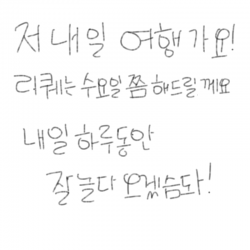 저 내일 여행가요!
리퀘는 수요일 쯤 해드릴께요
내일 하루동안
잘 놀다 오겠슴돠!